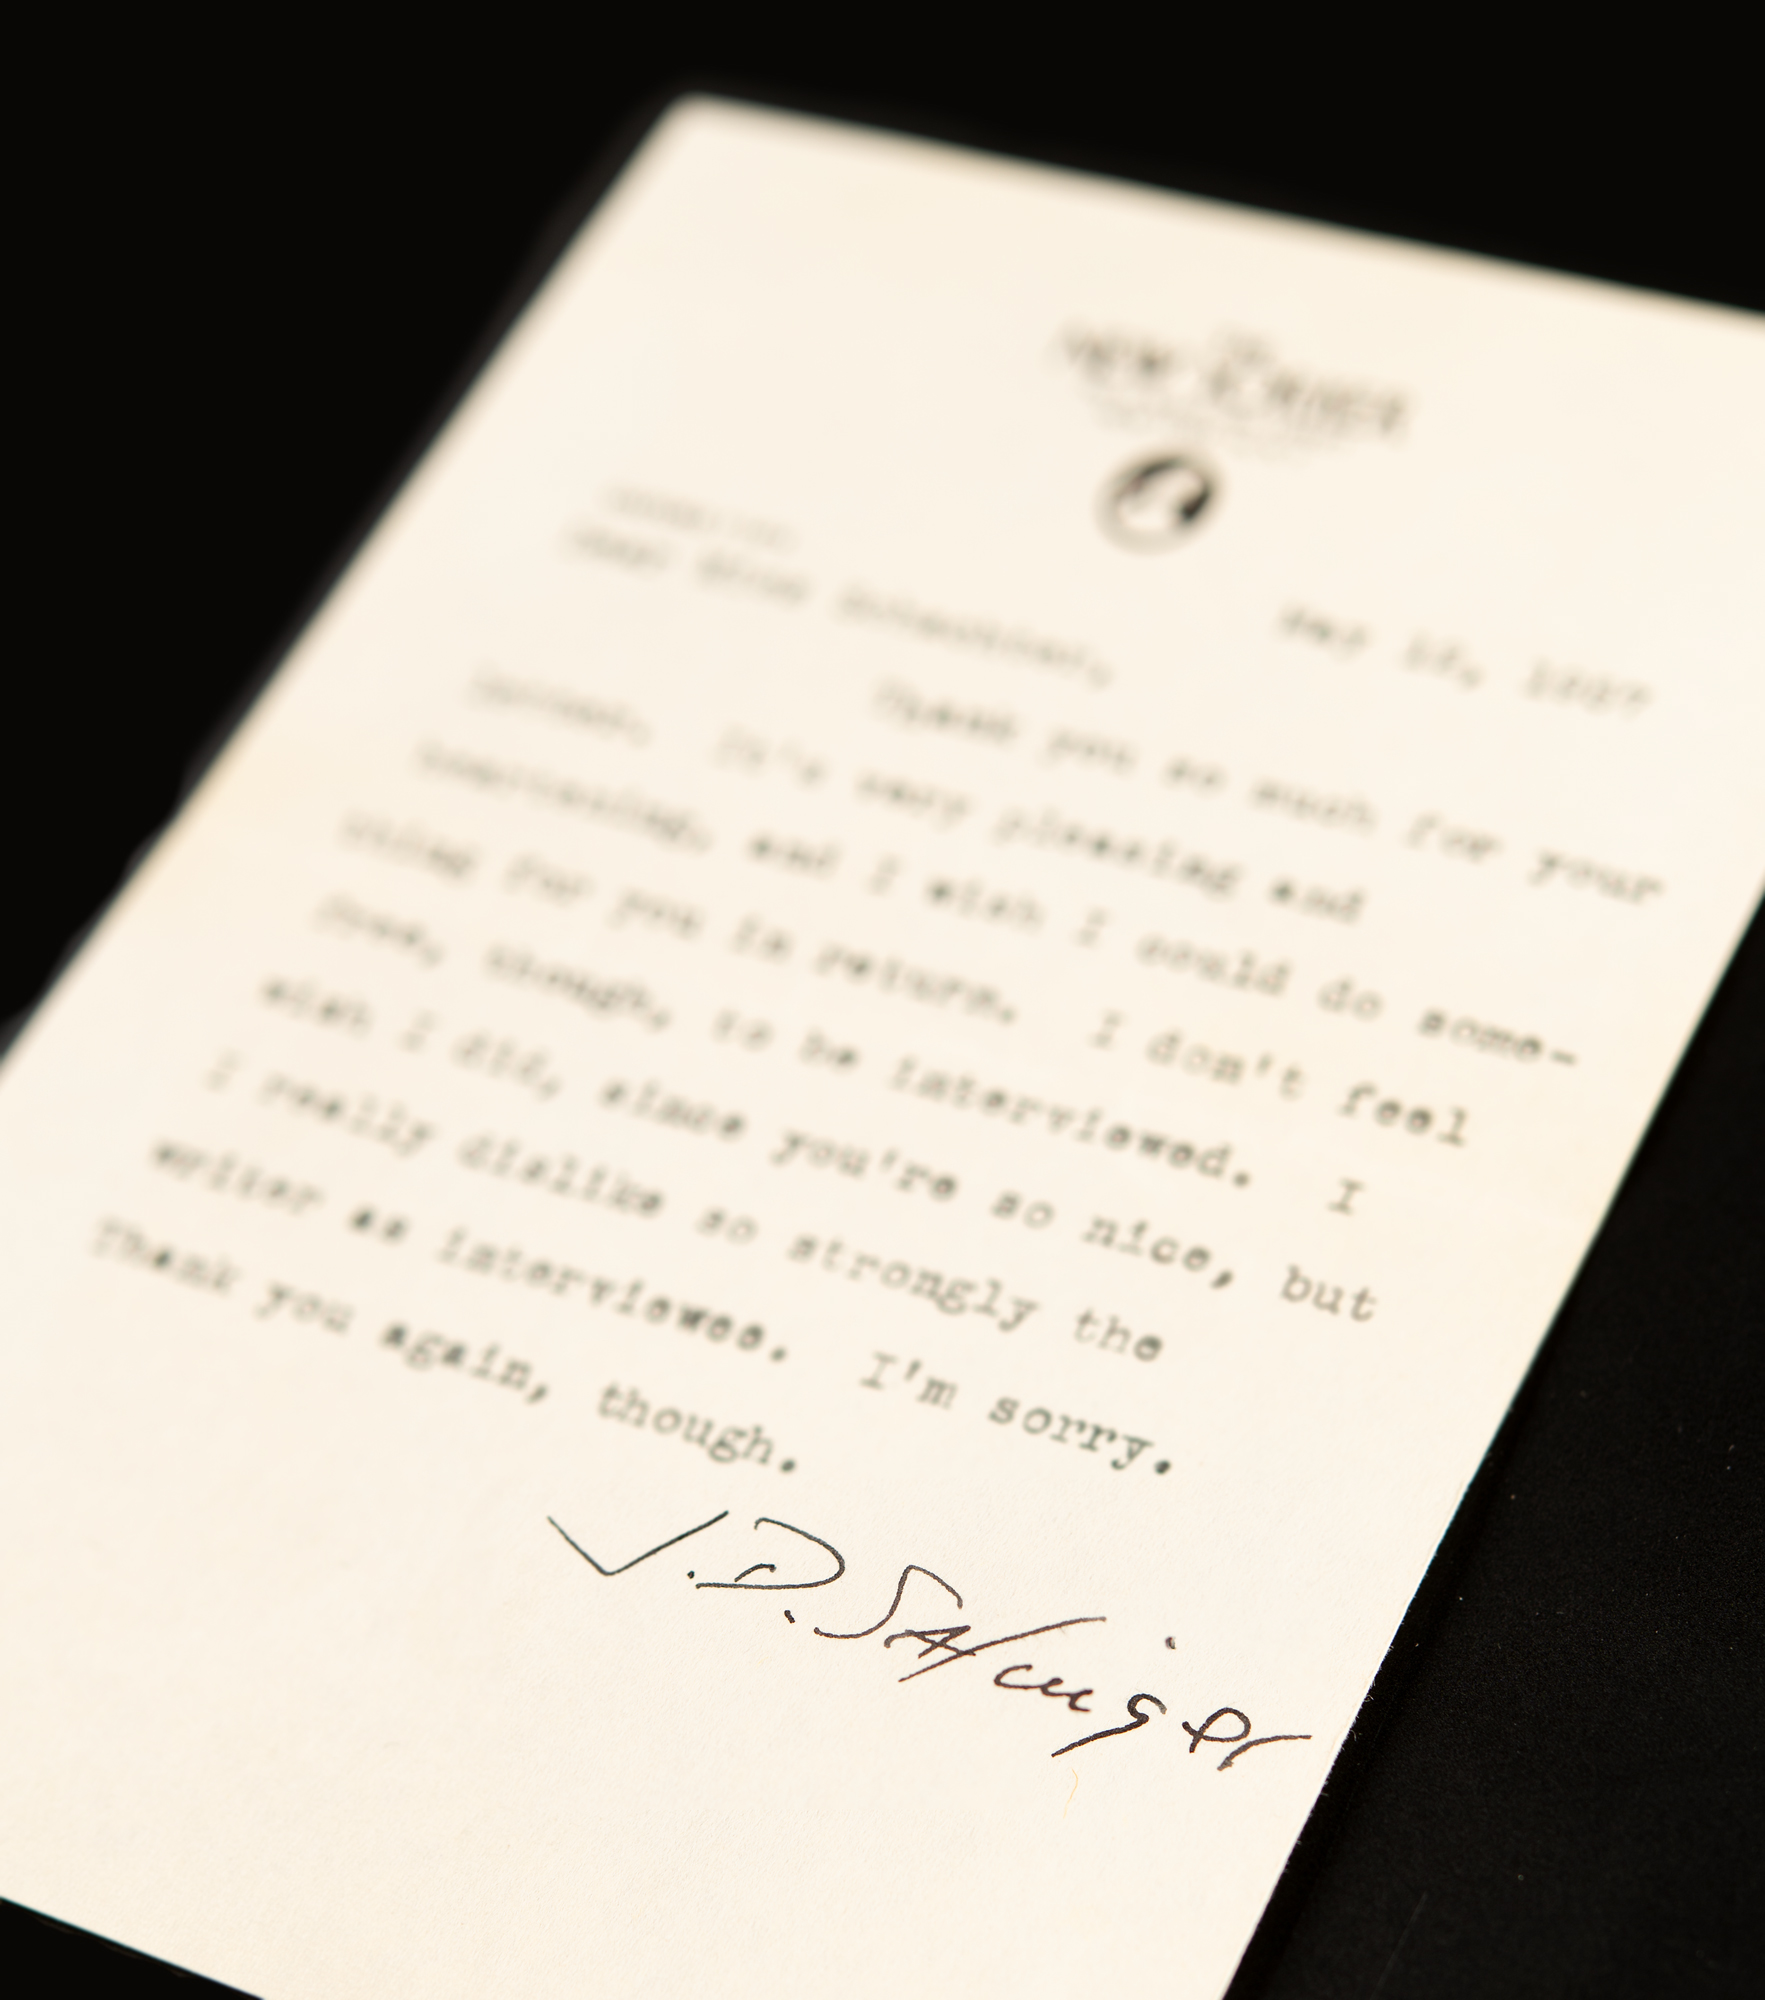 THE
NEW YORKER
Thank you so much for your
It's very pleasing and
surprising, and I wish I could do some-
thing for you in return. I don't feel
free, though, to be interviewed. I
wish I did, since you're so nice, but
I really dislike so strongly the
writer as interviewee. I'm sorry.
Thank you again, though.
J. D. Salinger